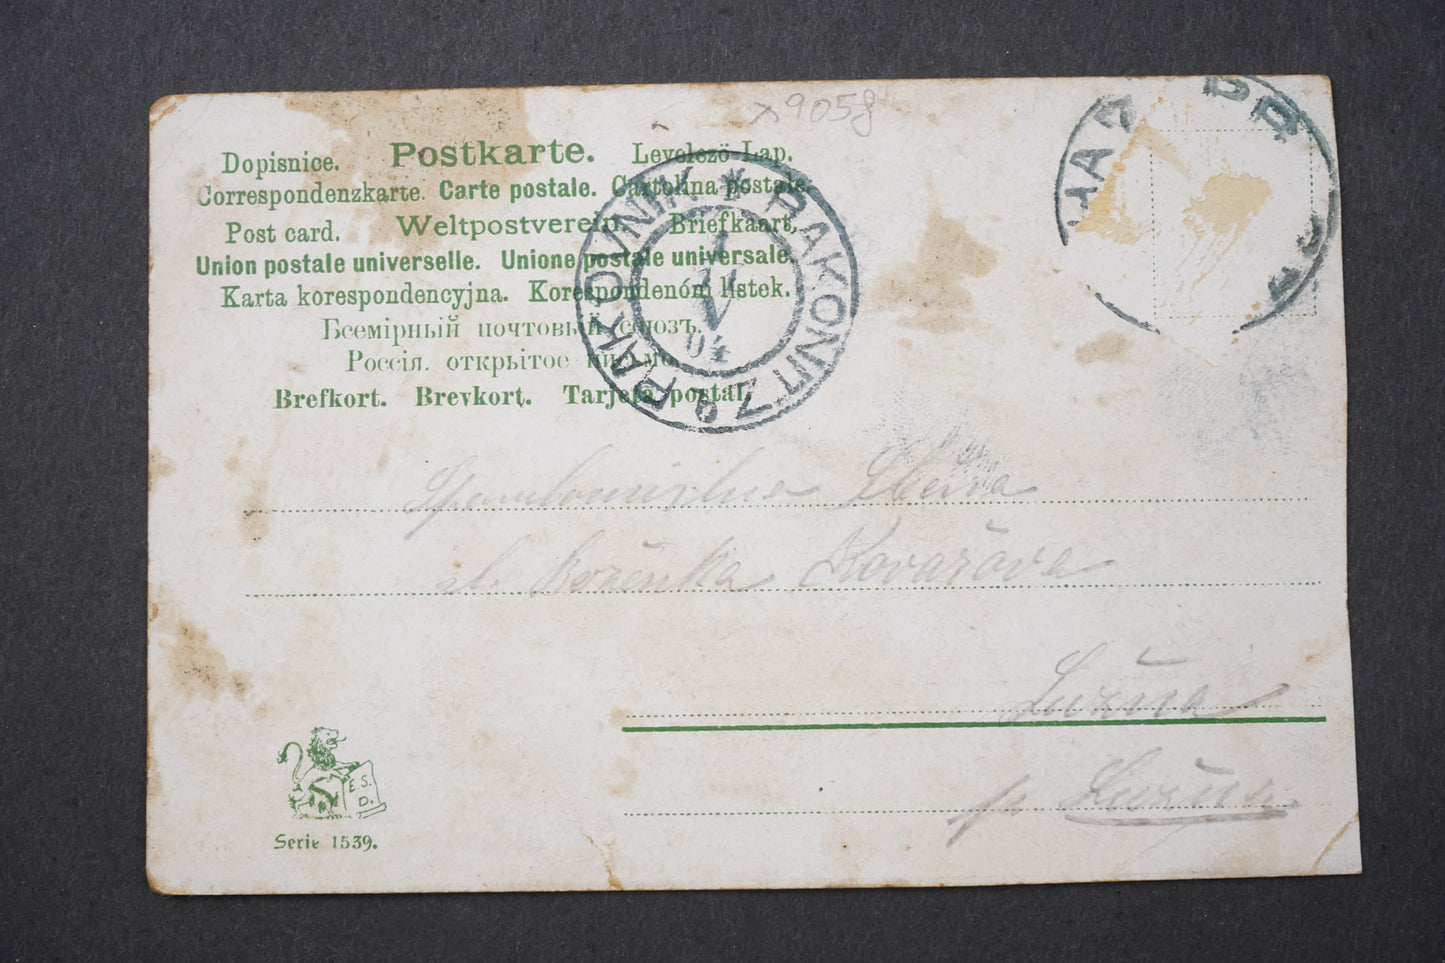 9058
Dopisnice. Postkarte. Levelezö-Lap.
Correspondenzkarte. Carte postale. Cartolina postale.
Post card. Weltpostverein. Briefkaart.
Union postale universelle. Unione postale universale.
Karta korespondencyjna. Korespondenóni listek.
Всемірный почтовый союзъ.
Россія. открытое письмо.
Brefkort. Brevkort. Tarjeta postal.
RAKOVNÍK * RAKONITZ
V
04
Božénka Kovařova
Lužna
Lužna
E. S.
D.
Serie 1539.